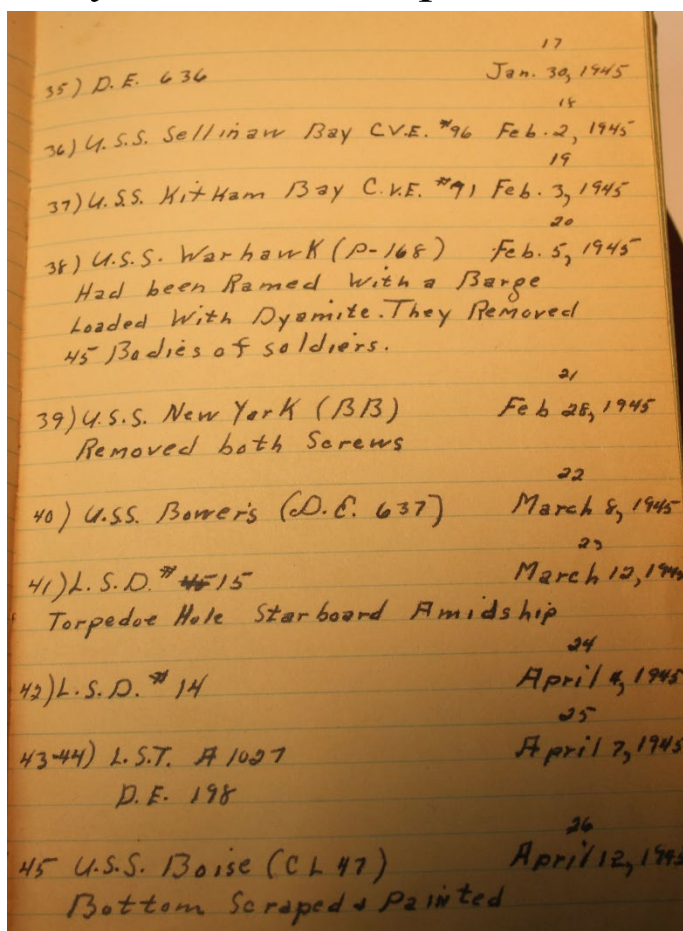 17
35) D.E. 636 Jan. 30, 1945
18
36) U.S.S. Sellinaw Bay C.V.E. #96 Feb. 2, 1945
19
37) U.S.S. Kitham Bay C.V.E. #91 Feb. 3, 1945
20
38) U.S.S. Warhawk (P-168) Feb. 5, 1945
Had been Ramed With a Barge
Loaded With Dyamite. They Removed
45 Bodies of soldiers.
21
39) U.S.S. New York (BB) Feb 28, 1945
Removed both Screws
22
40) U.S.S. Bowers (D.E. 637) March 8, 1945
23
41) L.S.D. # 15 March 12, 194
Torpedoe Hole Starboard Amidship
24
42) L.S.D. # 14 April 4, 1945
25
43-44) L.S.T. A 1027 April 7, 1945
D.E. 198
26
45 U.S.S. Boise (CL 47) April 12, 1945
Bottom Scraped & Painted